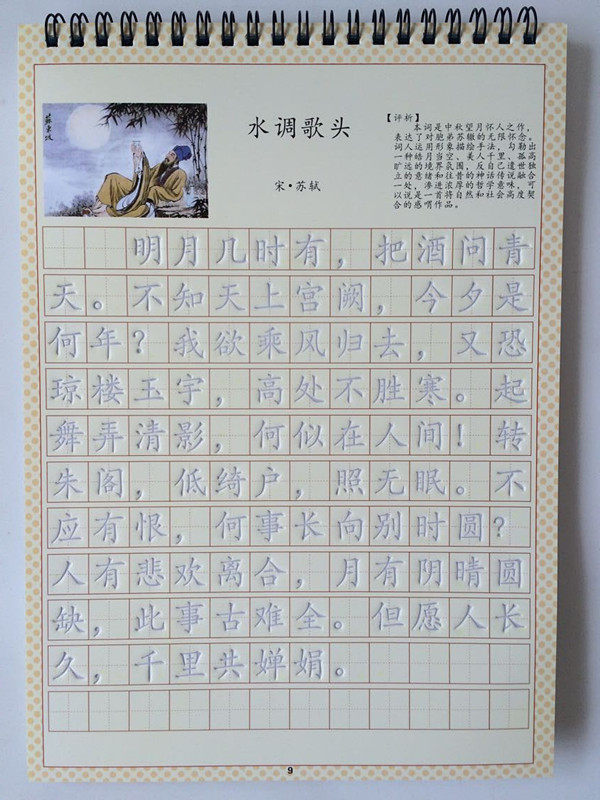 蘇東坡
水调歌头
宋·苏轼
【评析】
本词是中秋望月怀人之作，
表达了对胞弟苏辙的无限怀念。
词人运用形象描绘手法，勾勒出
一种皓月当空、美人千里、孤高
旷远的境界氛围，反自己遗世独
立的意绪和往昔的神话传说融合
一处，渗进浓厚的哲学意味，可
以说是一首将自然和社会高度契
合的感喟作品。
明月几时有，把酒问青
天。不知天上宫阙，今夕是
何年？我欲乘风归去，又恐
琼楼玉宇，高处不胜寒。起
舞弄清影，何似在人间！转
朱阁，低绮户，照无眠。不
应有恨，何事长向别时圆？
人有悲欢离合，月有阴晴圆
缺，此事古难全。但愿人长
久，千里共婵娟。
9